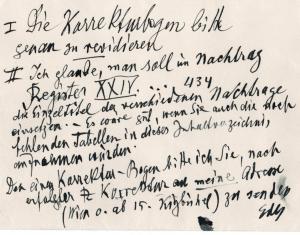 I Die Korrekturbogen bitte
genau zu revidieren
II Ich glaube, man soll im Nachtrag
Register XXIV. ... 434
die Einzeltitel der verschiedenen Nachträge
einsetzen. – So wäre gut, wenn Sie auch die noch
fehlenden Tabellen in dieses Inhaltsverzeichnis,
aufnehmen würden.
Den einen Korrektur-Bogen bitte ich Sie, nach
erfolgter Korrektur an meine Adresse
(Wien o. ab 15. Kitzbühel) zu senden